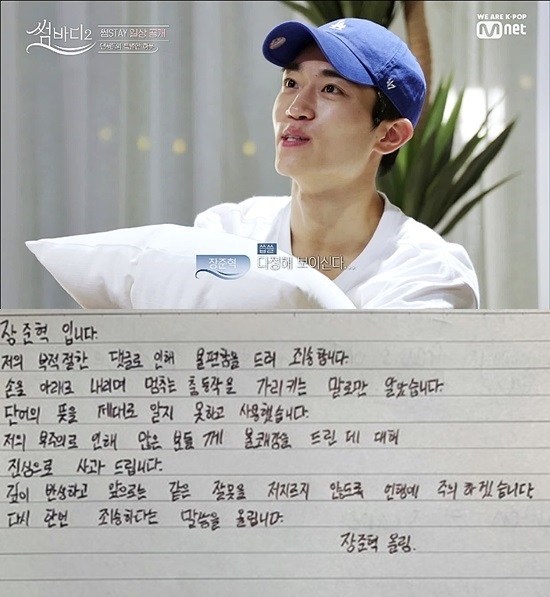 썸바디2
썸STAY 일상 공개
WE ARE K-POP
Mnet
씁쓸
장준혁
다정해 보이신다...
장준혁 입니다.
저의 부적절한 댓글로 인해 불편함을 드려 죄송합니다.
손을 아래로 내리며 멈추는 춤 동작을 가리키는 말로만 알았습니다.
단어의 뜻을 제대로 알지 못하고 사용했습니다.
저의 부주의로 인해 않은 분들 께 불쾌감을 드린 데 대해
진심으로 사과 드립니다.
깊이 반성하고 앞으로는 같은 잘못을 저지르지 않도록 언행에 주의 하겠습니다
다시 한번 죄송하다는 말씀을 올립니다.
장준혁 올림.